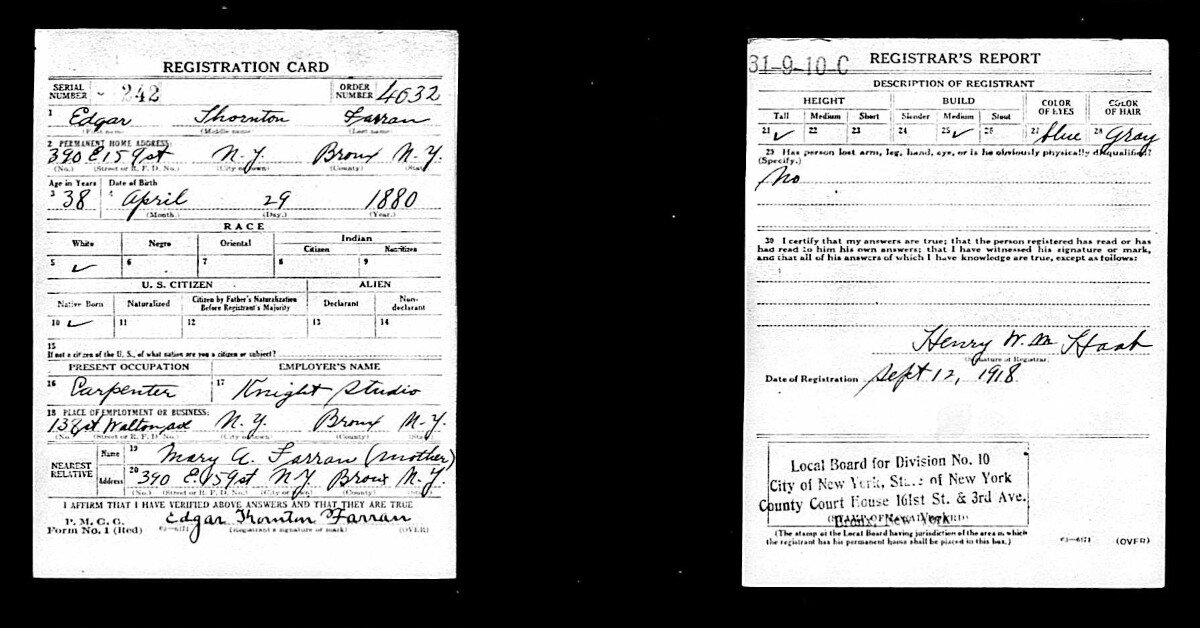 REGISTRATION CARD
SERIAL NUMBER 242 ORDER NUMBER 4632
1 Edgar Thornton Farran
(First name) (Middle name) (Last name)
2 PERMANENT HOME ADDRESS:
390 E 159 st N.Y. Bronx N.Y.
(No.) (Street or R. F. D. No.) (City or town) (County) (State)
Age in Years Date of Birth
3 38 4 April 29 1880
(Month.) (Day.) (Year.)
RACE
White Negro Oriental Indian
Citizen Noncitizen
5 ✓ 6 7 8 9
U. S. CITIZEN ALIEN
Native Born Naturalized Citizen by Father's Naturalization Before Registrant's Majority Declarant Non-declarant
10 ✓ 11 12 13 14
15
If not a citizen of the U. S., of what nation are you a citizen or subject?
PRESENT OCCUPATION EMPLOYER'S NAME
16 Carpenter 17 Knight Studio
18 PLACE OF EMPLOYMENT OR BUSINESS:
138 st Walton N.Y. Bronx N.Y.
(No.) (Street or R. F. D. No.) (City or town) (County) (State)
NEAREST RELATIVE Name 19 Mary A. Farran (mother)
Address 20 390 E. 159 st N.Y. Bronx N.Y.
(No.) (Street or R. F. D. No.) (City or town) (County) (State)
I AFFIRM THAT I HAVE VERIFIED ABOVE ANSWERS AND THAT THEY ARE TRUE
P. M. G. O.
Form No. 1 (Red) 03—6171 Edgar Thornton Farran
(Registrant's signature or mark) (OVER)
31-9-10-C REGISTRAR'S REPORT
DESCRIPTION OF REGISTRANT
HEIGHT BUILD COLOR OF EYES COLOR OF HAIR
Tall Medium Short Slender Medium Stout
21 ✓ 22 23 24 25 ✓ 26 27 blue 28 Gray
29 Has person lost arm, leg, hand, eye, or is he obviously physically disqualified?
(Specify.)
No
30 I certify that my answers are true; that the person registered has read or has
had read to him his own answers; that I have witnessed his signature or mark,
and that all of his answers of which I have knowledge are true, except as follows:
Henry W. M. Haab
(Signature of Registrar)
Date of Registration Sept 12, 1918.
Local Board for Division No. 10
City of New York, State of New York
County Court House 161st St. & 3rd Ave.
Bronx, New York
(STAMP OF LOCAL BOARD)
(The stamp of the Local Board having jurisdiction of the area in which
the registrant has his permanent home shall be placed in this box.)
03—6171 (OVER)